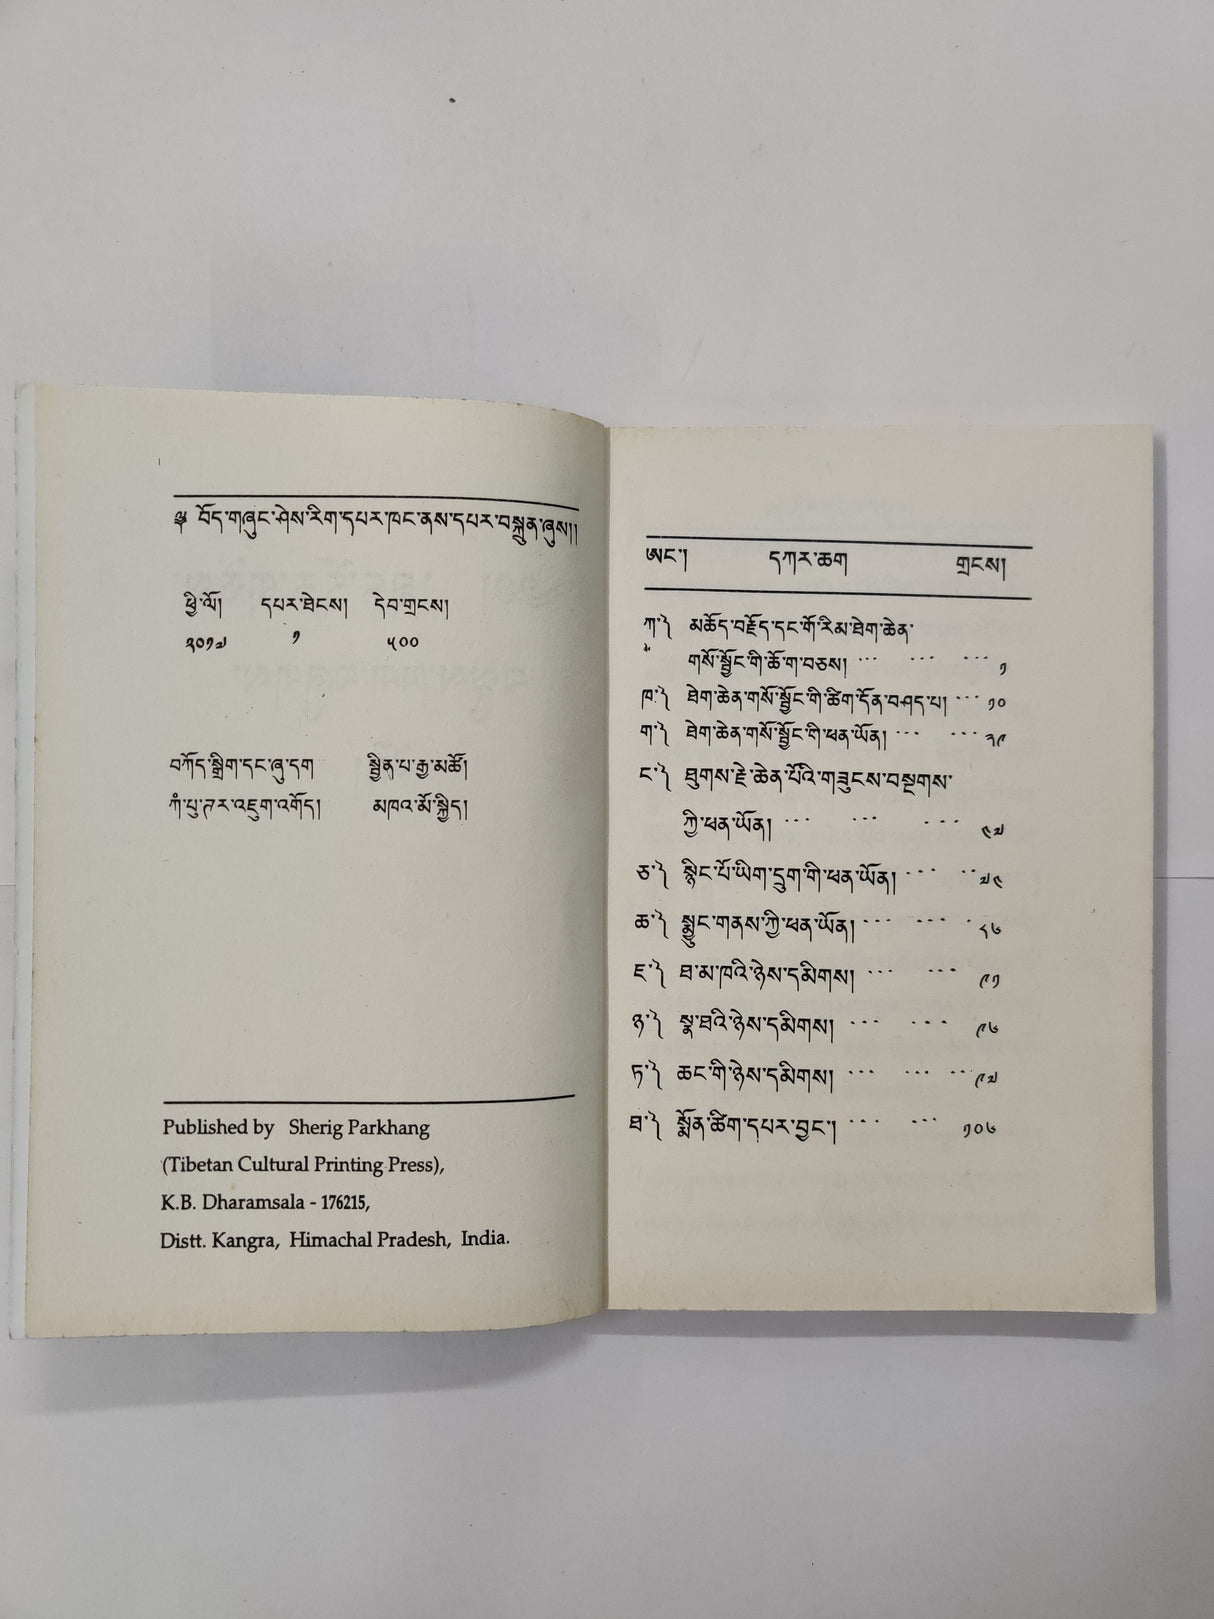 ༄ བོད་གཞུང་ཤེས་རིག་དཔར་ཁང་ནས་དཔར་བསྐྲུན་ཞུས།།
ཕྱི་ལོ། དཔར་ཐེངས། དེབ་གྲངས།
༢༠༡༧ ༡ ༥༠༠
བཀོད་སྒྲིག་དང་ཞུ་དག སྦྱིན་པ་རྒྱ་མཚོ།
ཀཾ་པུ་ཊར་འཇུག་འགོད། མཁའ་མོ་སྐྱིད།
Published by Sherig Parkhang
(Tibetan Cultural Printing Press),
K.B. Dharamsala - 176215,
Distt. Kangra, Himachal Pradesh, India.
ཨང་། དཀར་ཆག གྲངས།
ཀ་༽ མཆོད་བརྗོད་དང་གོ་རིམ་ཐེག་ཆེན་
གསོ་སྦྱོང་གི་ཆོ་ག་བཅས། ... ... ... ༡
ཁ་༽ ཐེག་ཆེན་གསོ་སྦྱོང་གི་ཚིག་དོན་བཤད་པ། ... ༡༠
ག་༽ ཐེག་ཆེན་གསོ་སྦྱོང་གི་ཕན་ཡོན། ... ... ༢༩
ང་༽ ཐུགས་རྗེ་ཆེན་པོའི་གཟུངས་བསྔགས་
ཀྱི་ཕན་ཡོན། ... ... ... ༤༧
ཅ་༽ སྙིང་པོ་ཡིག་དྲུག་གི་ཕན་ཡོན། ... .. ༧༤
ཆ་༽ སྨྱུང་གནས་ཀྱི་ཕན་ཡོན། ... ... . ༨༦
ཇ་༽ ཐ་མ་ཁའི་ཉེས་དམིགས། ... ... ༩༡
ཉ་༽ སྣ་ཐའི་ཉེས་དམིགས། ... ... ༩༦
ཏ་༽ ཆང་གི་ཉེས་དམིགས། ... ... ... ༩༧
ཐ་༽ སྨོན་ཚིག་དཔར་བྱང་། ... ... ༡༠༦